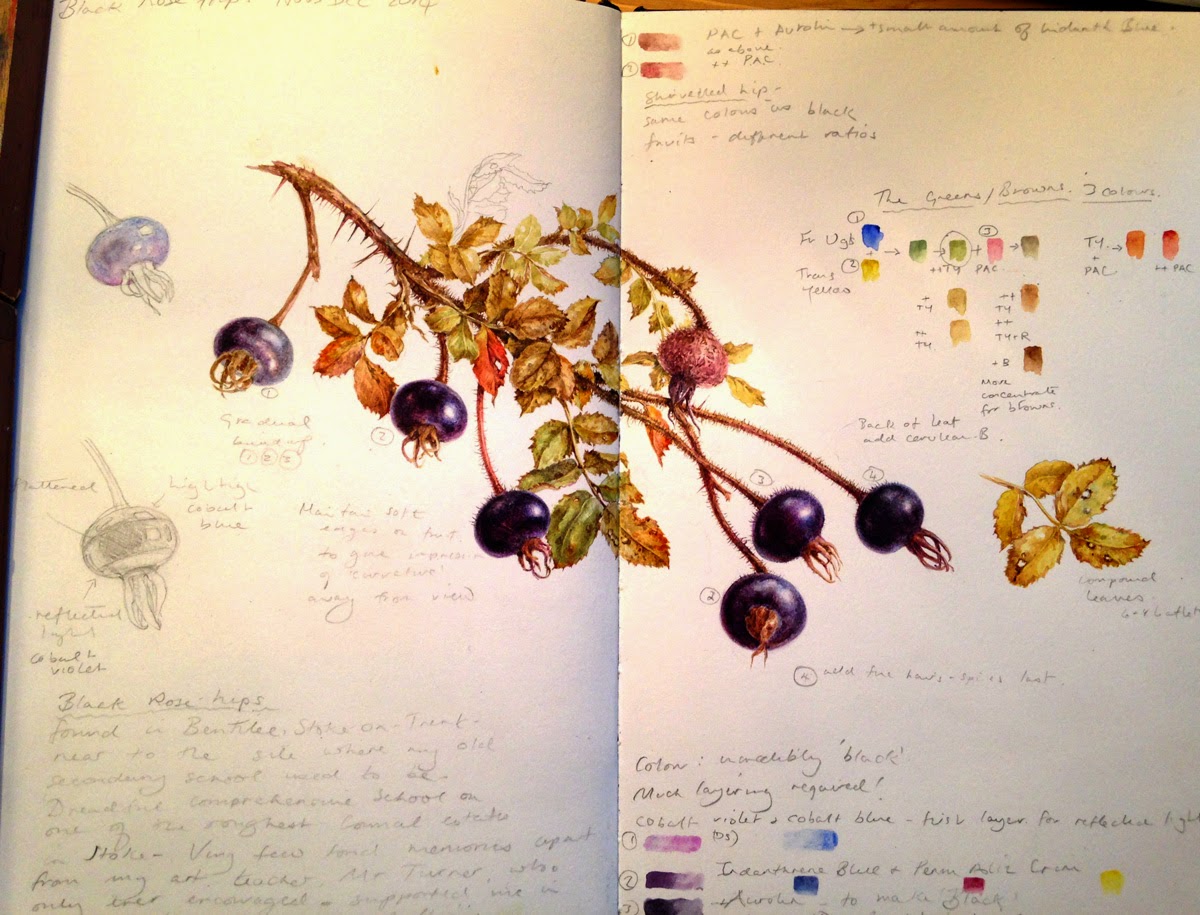 Black Rose hips Nov-Dec 2014
①
Gradual
building.
① ② ③
②
flattened
high high
cobalt
blue
Maintain soft
edges on fruit
to give impression
of 'curvature'
away from view
reflected
light
cobalt
violet
Black Rose-hips
found in Bentilee, Stoke-on-Trent-
near to the site where my old
secondary school used to be-
Dreadful comprehensive school on
one of the roughest Council estates
in Stoke- Very few fond memories apart
from my art teacher, Mr Turner, who
only ever encouraged - supported me in
① PAC + Aurolin → + small amount of Indanth Blue.
as above
② ++ PAC
Shrivelled hip-
same colours as black
fruits - different ratios
The Greens/Browns. 3 colours.
①
Fr Ugb
+
② Trans
Yellow
→ → + ③ →
++TY PAC
+
TY
++
TY
++
TY
++
TY+R
+B
More
concentrate
for browns.
TY →
+
PAC
++ PAC
Back of leaf
add cerulean B.
③
④
②
Compound
leaves.
④ add fine hairs-spines last.
Colour: incredibly 'black'
Much layering required!
Cobalt violet & cobalt blue - first layer for reflected light
① (DS)
② Indanthrene Blue + Perm Aliz Crim
③ + Aurolin - to make 'Black'